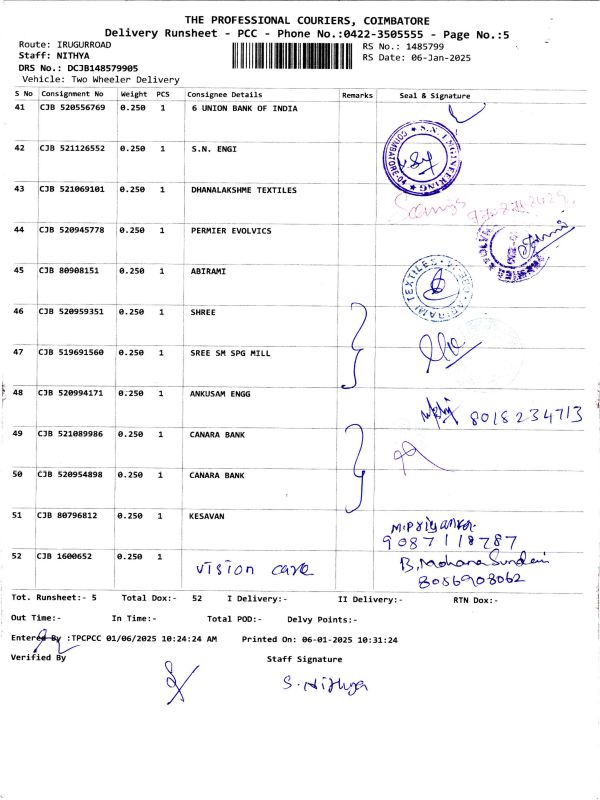 THE PROFESSIONAL COURIERS, COIMBATORE
Delivery Runsheet - PCC - Phone No.:0422-3505555 - Page No.:5
Route: IRUGURROAD
RS No.: 1485799
Staff: NITHYA
RS Date: 06-Jan-2025
DRS No.: DCJB148579905
Vehicle: Two Wheeler Delivery
S No Consignment No Weight PCS Consignee Details Remarks Seal & Signature
41 CJB 520556769 0.250 1 6 UNION BANK OF INDIA
42 CJB 521126552 0.250 1 S.N. ENGI
S.N. ENGINEERING
COIMBATORE-04
43 CJB 521069101 0.250 1 DHANALAKSHME TEXTILES
44 CJB 520945778 0.250 1 PERMIER EVOLVICS
45 CJB 80908151 0.250 1 ABIRAMI
ABIRAMI TEXTILES
46 CJB 520959351 0.250 1 SHREE
47 CJB 519691560 0.250 1 SREE SM SPG MILL
48 CJB 520994171 0.250 1 ANKUSAM ENGG
8018234713
49 CJB 521089986 0.250 1 CANARA BANK
50 CJB 520954898 0.250 1 CANARA BANK
51 CJB 80796812 0.250 1 KESAVAN
M.Priyanka.
9087118787
52 CJB 1600652 0.250 1 vision care
B.Mohana Sundari
8056908062
Tot. Runsheet:- 5 Total Dox:- 52 I Delivery:- II Delivery:- RTN Dox:-
Out Time:- In Time:- Total POD:- Delvy Points:-
Entered By :TPCPCC 01/06/2025 10:24:24 AM Printed On: 06-01-2025 10:31:24
Verified By Staff Signature
S.Nithya